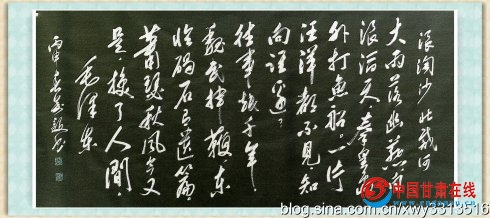 浪淘沙北戴河
大雨落幽燕白
浪滔天秦皇島
外打魚船。一片
汪洋都不見知
向誰邊
往事越千年
魏武揮鞭東
臨碣石有遺篇
蕭瑟秋風今又
是換了人間
毛澤東
丙申春
中国甘肃在线
blog.sina.com.cn/xwy3313516